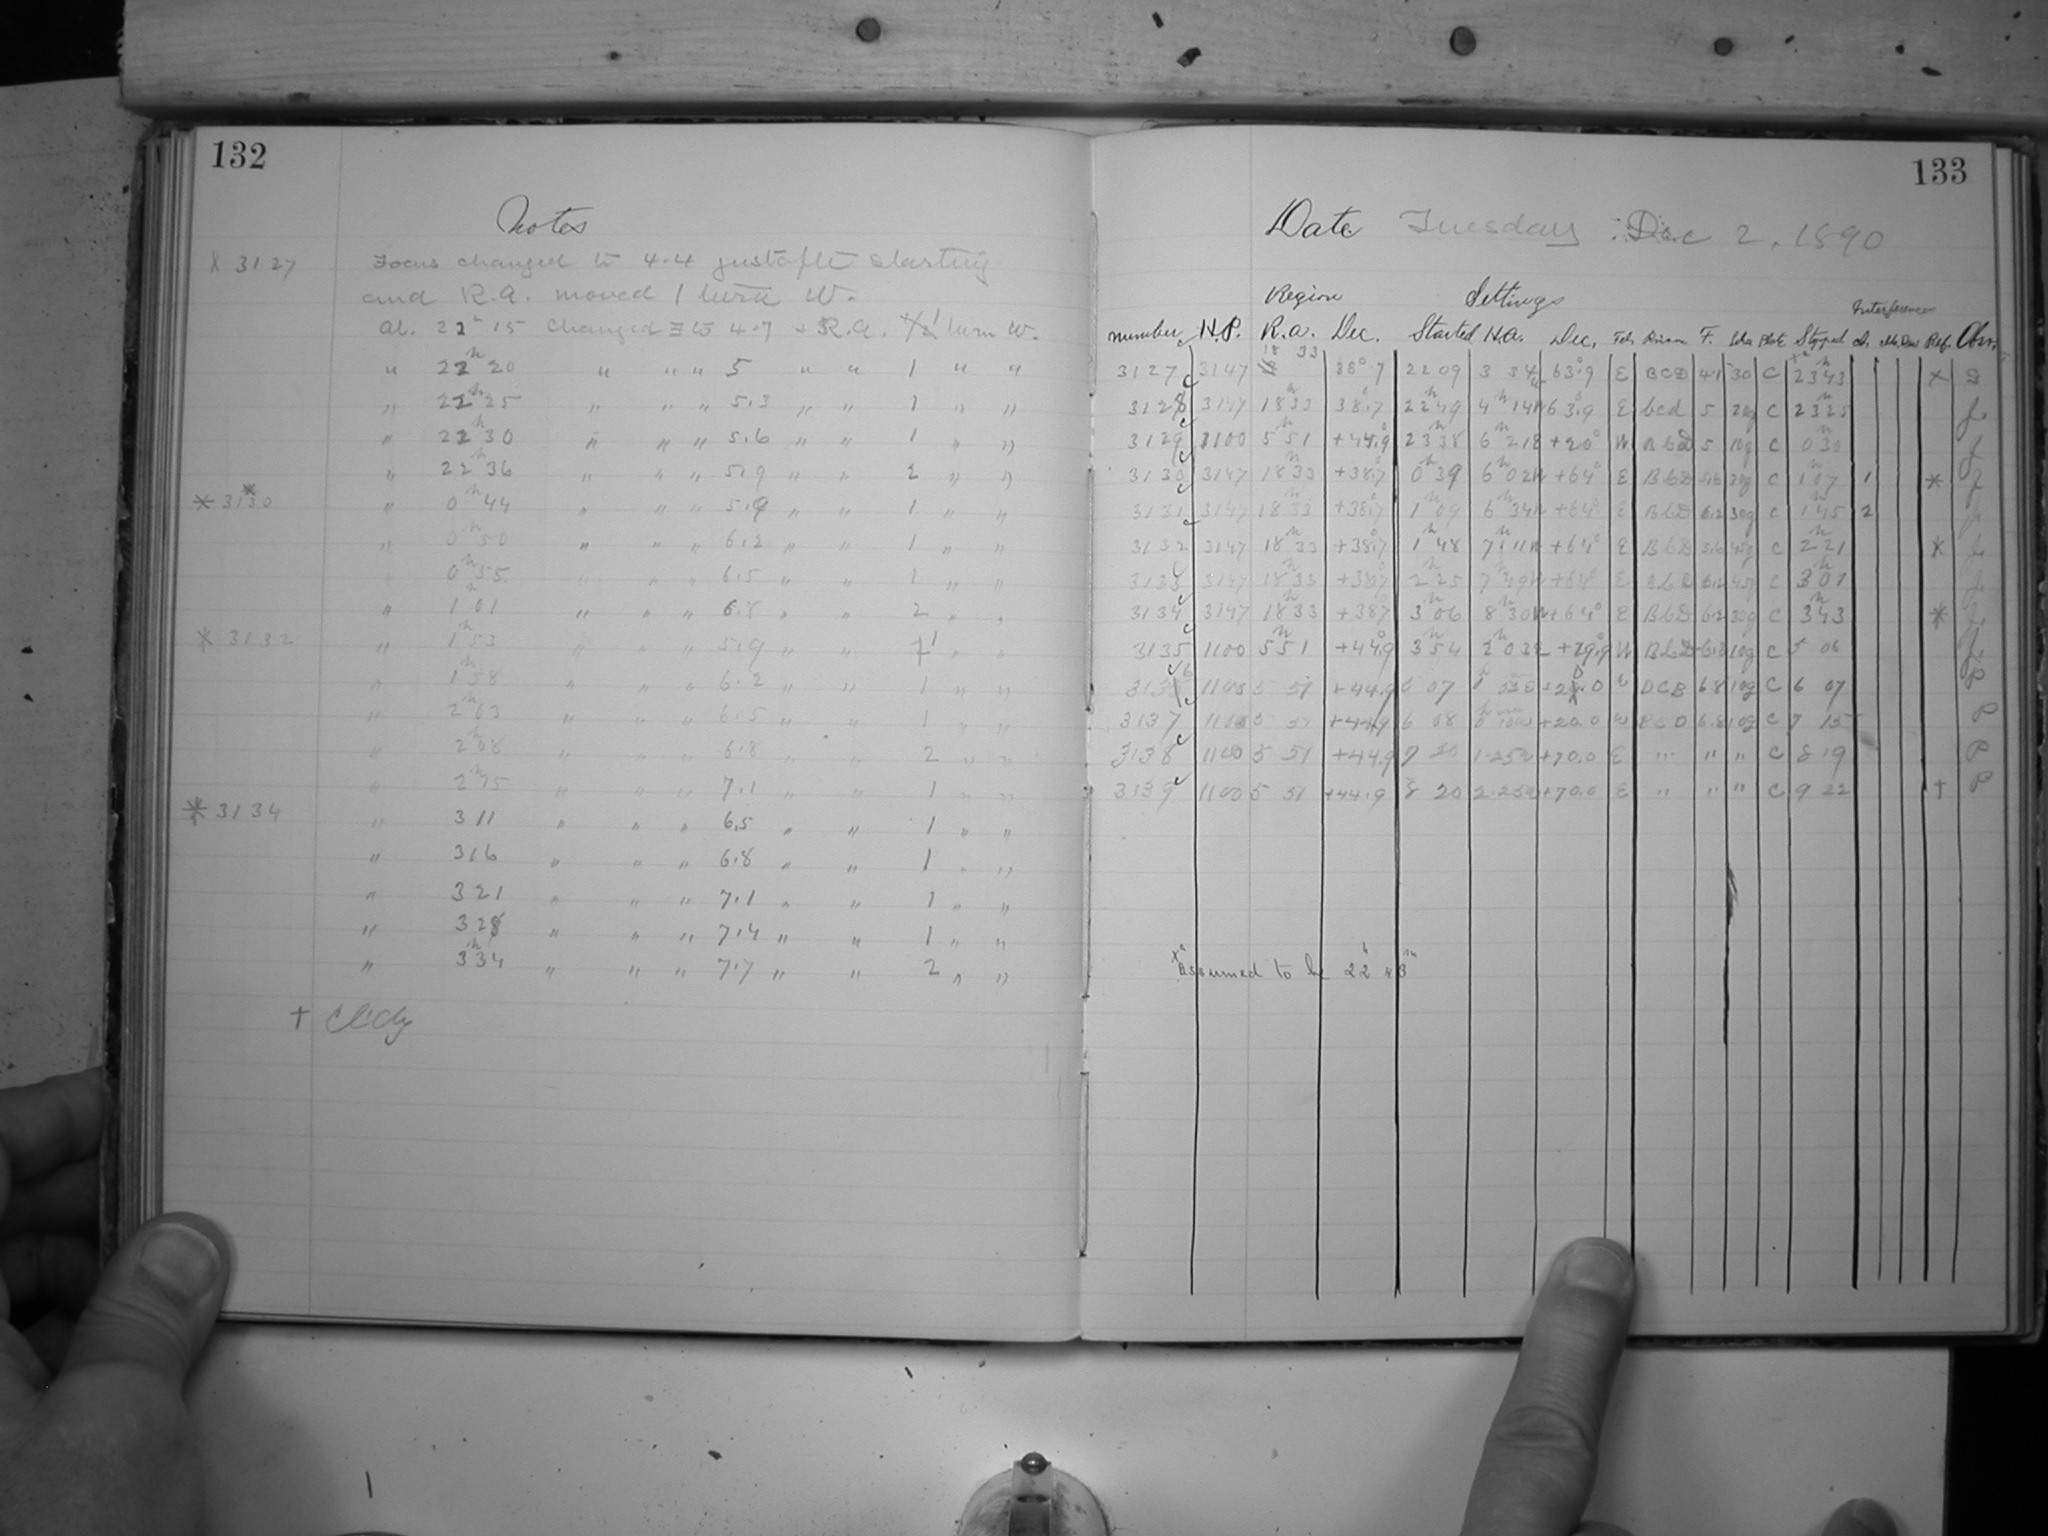 132
Notes
X 3127 Focus changed to 4.4 just after starting
and R.A. moved 1 turn W.
At. 22h 15 changed F to 4.7 + R.A. 1 turn W.
" 22h 20 " " " 5 " " 1 " "
" 22h 25 " " " 5.3 " " 1 " "
" 22h 30 " " " 5.6 " " 1 " "
" 22h 36 " " " 5.9 " " 2 " "
* 3130 " 0h 44 " " " 5.9 " " 1 " "
" 0h 50 " " " 6.2 " " 1 " "
0h 55 " " " 6.5 " " 1 " "
" 1h 01 " " " 6.8 " " 2 " "
* 3132 " 1h 53 " " " 5.9 " " 1 " "
" 1h 58 " " " 6.2 " " 1 " "
" 2h 03 " " " 6.5 " " 1 " "
" 2h 08 " " " 6.8 " " 2 " "
" 2h 15 " " " 7.1 " " 1 " "
* 3134 " 3 11 " " " 6.5 " " 1 " "
" 3 16 " " " 6.8 " " 1 " "
" 3 21 " " " 7.1 " " 1 " "
" 3 28 " " " 7.4 " " 1 " "
" 3h 34 " " " 7.7 " " 2 " "
† Cldy
133
Date Tuesday Dec 2, 1890
Region Settings Interferences
Number H.P. R.a. Dec. Started H.a. Dec. F. Plate Stopped Ref. Obsr.
3127 3147 18 33 38°.7 22 09 3 34 63°.9 E BCD 4.1 30 C 23h 43 X
3128 3147 18h 33 38°.7 22h 49 4h 14 63°.9 E bcd 5 20g C 23h 25
3129 1100 5h 51 +44°.9 23h 38 6h 218 +20° W BbD 5 10g C 0h 30
3130 3147 18h 33 +38°.7 0h 39 6h 02 +64° E BbD 5.6 30g C 1h 07 1 *
3131 3147 18h 33 +38°.7 1h 09 6h 34 +64° E BbD 6.2 30g C 1h 45 2
3132 3147 18h 33 +38°.7 1h 48 7h 11 +64° E BbD 5.6 45g C 2h 21 *
3133 3147 18h 33 +38°.7 2h 25 7h 49 +64° E BbD 6.2 45g C 3h 01
3134 3147 18h 33 +38°.7 3h 06 8h 30 +64° E BbD 6.2 30g C 3h 43 *
3135 1100 5h 51 +44°.9 3h 54 2h 03 +19°.9 W BbD 6.8 10g C 5 06
3136 1100 5 51 +44.9 5 07 W DCB 6.8 10g C 6 07 P
3137 1100 5 51 +44.9 6 08 +20.0 W BCD 6.8 10g C 7 15 P
3138 1100 5 51 +44.9 7 20 1.25 +70.0 E " " " C 8 19 P
3139 1100 5 51 +44.9 8 20 2.25 +70.0 E " " " C 9 22 † P
assumed to be 22h 43m